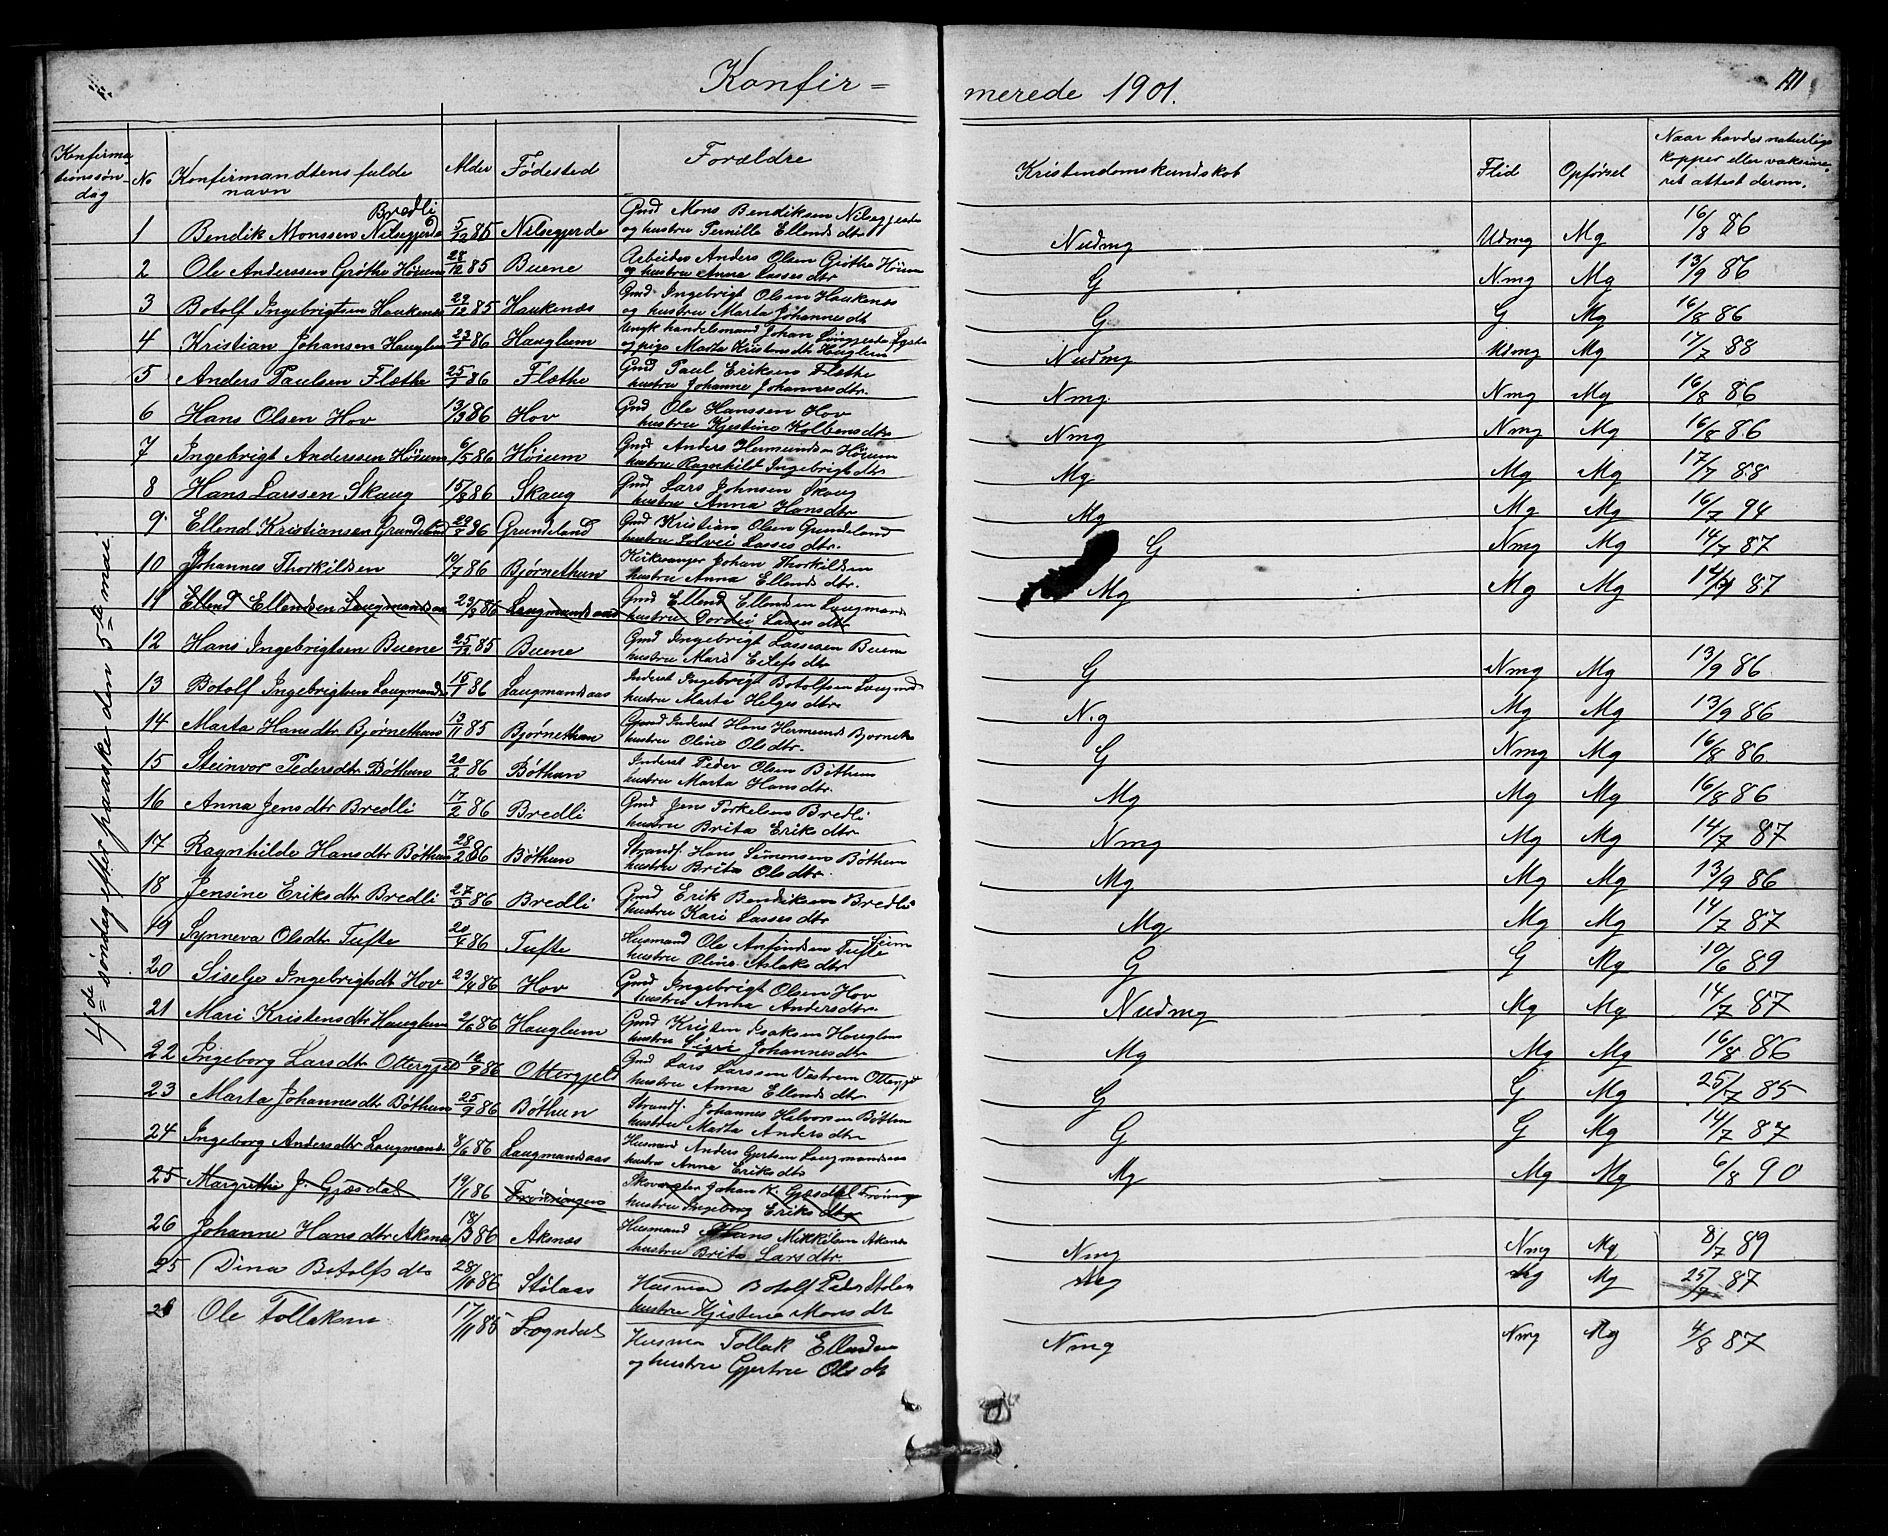 Konfir = merede 1901. 171
Konfirma- tionssøn- dag | No | Konfirmandtens fulde navn | Alder | Fødested | Forældre | Kristendomskundskab | Flid | Opførsel | Naar havdes naturlige kopper eller vaksine- ret attest derom.
4de søndag efter paaske den 5te mai.
Bredli
1 Bendik Monssen Nilsegjerde 5/12 85 Nilsegjerde Gmd Mons Bendiksen Nilsegjerde og hustru Pernille Ellends dtr Nudmg Udmg Mg 16/8 86
2 Ole Anderssen Grøthe Høium 28/12 85 Buene Arbeider Anders Olsen Grøthe Høium og hustru Anna Lasses dtr G Nmg Mg 13/9 86
3 Botolf Ingebrigtsen Haukenæs 29/12 85 Haukenæs Gmd Ingebrigt Olsen Haukenæs og hustru Marta Johannesdt G G Mg 16/8 86
4 Kristian Johansen Hauglum 23/1 86 Hauglum Ungk handelsmand Johan og pige Marta Kristensdtr Hauglum Nudmg Udmg Mg 17/7 88
5 Anders Paulsen Flæthe 25/1 86 Flæthe Gmd Paul Eriksen Flæthe hustru Johanne Johannesdtr. Nmg Nmg Mg 16/8 86
6 Hans Olsen Hov 13/3 86 Hov Gmd Ole Hanssen Hov hustru Kjestine Kolbensdtr Nmg Nmg Mg 16/8 86
7 Ingebrigt Anderssen Høium 6/5 86 Høium Gmd Anders Hermundsen Høium hustru Ragnhild Ingebrigtsdtr Mg Mg Mg 17/7 88
8 Hans Larssen Skaug 15/8 86 Skaug Gmd Lars Johnsen Skaug hustru Anna Hansdtr Mg Mg Mg 16/7 94
9 Ellend Kristiansen Grundeland 86 Grundeland Gmd Kristian Olsen Grundeland hustru Solvei Lasses dtr. G Nmg Mg 14/7 87
10 Johannes Thorkildsen 86 Bjørnethun Kirkesanger Johan Thorkildsen hustru Anna Ellends dtr. Mg Mg Mg 14/7 87
11 Ellend Ellendsen Laugmandsaas 23/8 86 Laugmandsaas Gmd Ellend Ellendsen Laugmands hustru Dordei Lasses dtr
12 Hans Ingebrigtsen Buene 25/12 85 Buene Gmd Ingebrigt Lassesen Buene hustru Mari Eilefs dtr G Nmg Mg 13/9 86
13 Botolf Ingebrigtsen Laugmandsaas 15/1 86 Laugmandsaas Inderst Ingebrigt Botolfsen Laugmd hustru Marta Helges dtr. N.g Mg Mg 13/9 86
14 Marta Hansdtr Bjørnethun 13/11 85 Bjørnethun Inderst Hans Hermunds Bjørneth hustru Oline Olsdtr. G Nmg Mg 16/8 86
15 Steinvor Pedersdtr Bøthun 20/2 86 Bøthun Inderst Peder Olsen Bøthun hustru Marta Hansdtr. Mg Mg Mg 16/8 86
16 Anna Jensdtr Bredli 17/2 86 Bredli Gmd Jens Torkelsen Bredli hustru Brita Eriksdtr Nmg Mg Mg 14/7 87
17 Ragnhilde Hansdtr Bøthun 28/2 86 Bøthun Strandf. Hans Simonsen Bøthun hustru Brita Olsdtr. Mg Mg Mg 13/9 86
18 Jensine Eriksdtr Bredli 27/3 86 Bredli Gmd Erik Bendiksen Bredli hustru Kari Lassesdtr Mg Mg Mg 14/7 87
19 Synneva Olsdtr Tufte 20/6 86 Tufte Husmand Ole Anfindsen Tufte Seim hustru Oline Aslaksdtr G G Mg 10/6 89
20 Siselje Ingebrigtsdt Hov 86 Hov Gmd Ingebrigt Olsen Hov hustru Anna Andersdtr. Nudmg Mg Mg 14/7 87
21 Mari Kristensdtr Hauglum 2/6 86 Hauglum Gmd Kristen Isaksen Hauglum hustru Sigri Johannesdtr Mg Mg Mg 16/8 86
22 Ingeborg Larsdtr Ottergjeld 16/9 86 Ottergjeld Gmd Lars Larssen Vestrem Ottergjel hustru Anna Ellends dtr G G Mg 25/7 85
23 Marta Johannesdtr Bøthun 25/9 86 Bøthun Strandf. Johannes Halvorsen Bøthun hustru Marta Andersdtr G G Mg 14/7 87
24 Ingeborg Andersdtr Laugmands 8/6 86 Laugmandsaas Husmand Anders Gjertsen Laugmandsaas hustru Anna Eriksdtr Mg Mg Mg 6/8 90
25 Margrethe J. Gjesdal 86 Johan K. Gjesdal hustru Ingeborg Eriksdtr
26 Johanne Hansdtr Aksnæs 18/3 86 Aksnæs Husmand Hans Mikkelsen Aksnæs hustru Brita Larsdtr. Nmg Nmg Mg 8/7 89
25 Dina Botolfsdtr 28/10 86 Stølaas Husman Botolf Peders hustru Kjistena Monsdt Mg Mg Mg 25/9 87
26 Ole Tollaksen 17/11 85 Sogndal Husman Tollak Ellendsen og hustru Gjertru Ols dt Nmg Nmg Mg 4/8 87